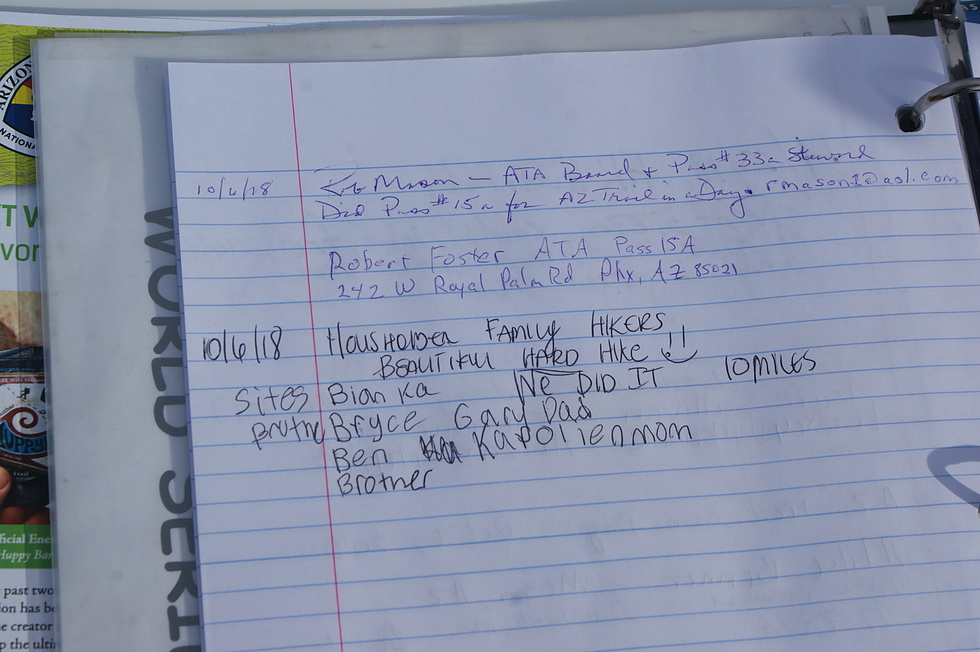 ARIZON
NATION
T W
vor
HUPPY
icial Ene
Huppy Bar
past two
ion has b
e creator
p the ulti
WORLD SERI
10/6/18 Mason - ATA Board + Pass #33a Steward
Did Pass #15a for AZ Trail in a Day. rmason1@aol.com
Robert Foster ATA Pass 15A
242 W Royal Palm Rd Phx, AZ 85021
10/6/18 Housholder FAMILY HIKERS
BEAUTIFUL HARD HIKE
WE DID IT 10 MILES
Sites Bianka
Bryce Gary Dad
Ben Kapolienmom
Brother